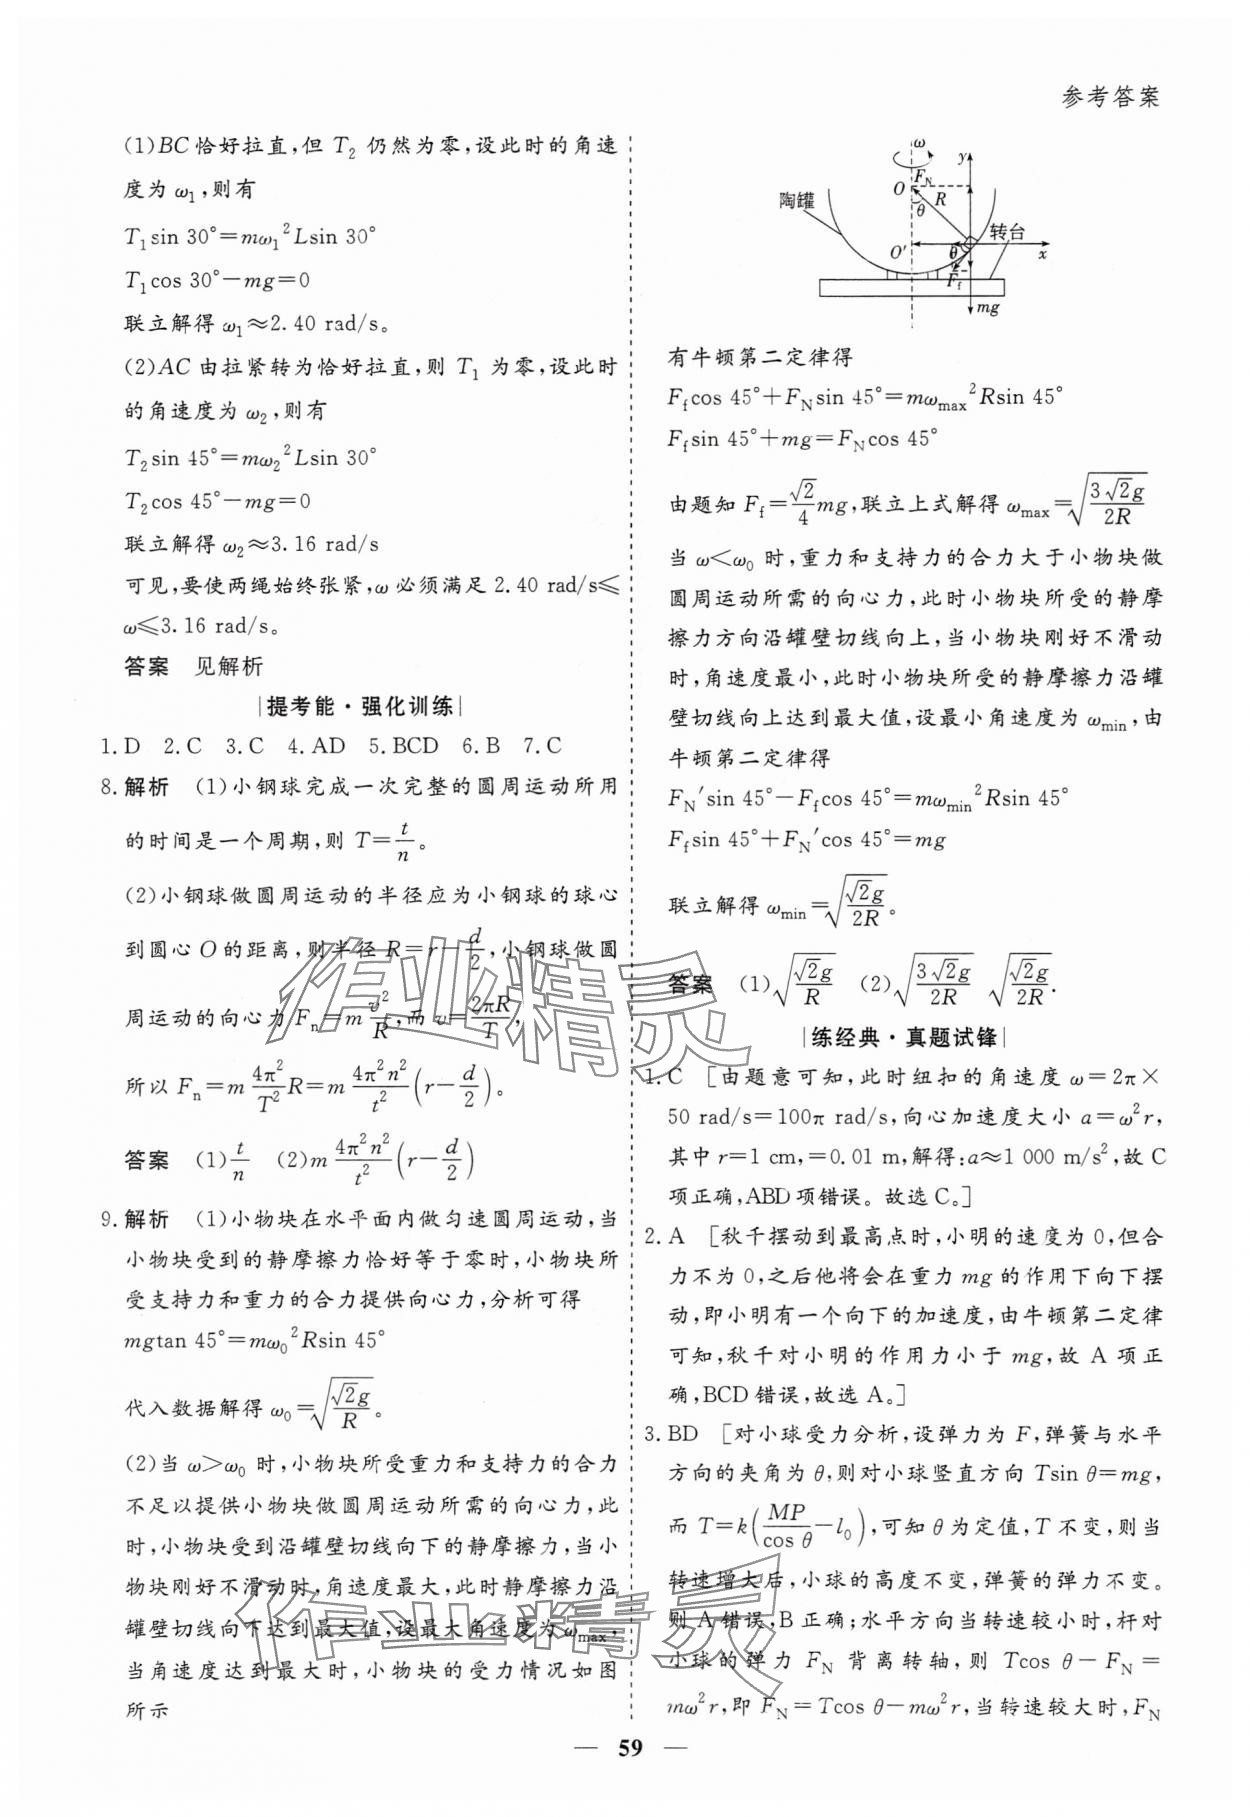 参考答案
(1)BC恰好拉直,但 T₂ 仍然为零,设此时的角速
度为 ω₁,则有
T₁sin 30°=mω₁²Lsin 30°
T₁cos 30°-mg=0
联立解得 ω₁≈2.40 rad/s。
(2)AC由拉紧转为恰好拉直,则 T₁ 为零,设此时
的角速度为 ω₂,则有
T₂sin 45°=mω₂²Lsin 30°
T₂cos 45°-mg=0
联立解得 ω₂≈3.16 rad/s
可见,要使两绳始终张紧,ω必须满足2.40 rad/s≤
ω≤3.16 rad/s。
答案 见解析
提考能·强化训练
1.D 2.C 3.C 4.AD 5.BCD 6.B 7.C
8.解析 (1)小钢球完成一次完整的圆周运动所用
的时间是一个周期,则 T=t/n。
(2)小钢球做圆周运动的半径应为小钢球的球心
到圆心O的距离,则半径 R=r-d/2,小钢球做圆
周运动的向心力 Fₙ=m v²/R,而 v=2πR/T,
所以 Fₙ=m 4π²/T² R=m 4π²n²/t² (r-d/2)。
答案 (1)t/n (2)m 4π²n²/t² (r-d/2)
9.解析 (1)小物块在水平面内做匀速圆周运动,当
小物块受到的静摩擦力恰好等于零时,小物块所
受支持力和重力的合力提供向心力,分析可得
mgtan 45°=mω₀²Rsin 45°
代入数据解得 ω₀=√(√2g/R)。
(2)当 ω>ω₀ 时,小物块所受重力和支持力的合力
不足以提供小物块做圆周运动所需的向心力,此
时,小物块受到沿罐壁切线向下的静摩擦力,当小
物块刚好不滑动时,角速度最大,此时静摩擦力沿
罐壁切线向下达到最大值,设最大角速度为 ωmax,
当角速度达到最大时,小物块的受力情况如图
所示
ω
y
F_N
O
R
θ
陶罐
转台
O′
θ
x
F_f
mg
有牛顿第二定律得
F_f cos 45°+F_N sin 45°=mωmax²Rsin 45°
F_f sin 45°+mg=F_N cos 45°
由题知 F_f=√2/4 mg,联立上式解得 ωmax=√(3√2g/2R)
当 ω<ω₀ 时,重力和支持力的合力大于小物块做
圆周运动所需的向心力,此时小物块所受的静摩
擦力方向沿罐壁切线向上,当小物块刚好不滑动
时,角速度最小,此时小物块所受的静摩擦力沿罐
壁切线向上达到最大值,设最小角速度为 ωmin,由
牛顿第二定律得
F_N′sin 45°-F_f cos 45°=mωmin²Rsin 45°
F_f sin 45°+F_N′cos 45°=mg
联立解得 ωmin=√(√2g/2R)。
答案 (1)√(√2g/R) (2)√(3√2g/2R) √(√2g/2R).
练经典·真题试锋
1.C [由题意可知,此时纽扣的角速度 ω=2π×
50 rad/s=100π rad/s,向心加速度大小 a=ω²r,
其中 r=1 cm,=0.01 m,解得:a≈1 000 m/s²,故C
项正确,ABD项错误。故选C。]
2.A [秋千摆动到最高点时,小明的速度为0,但合
力不为0,之后他将会在重力 mg 的作用下向下摆
动,即小明有一个向下的加速度,由牛顿第二定律
可知,秋千对小明的作用力小于 mg,故 A 项正
确,BCD错误,故选A。]
3.BD [对小球受力分析,设弹力为 F,弹簧与水平
方向的夹角为 θ,则对小球竖直方向 Tsin θ=mg,
而 T=k(MP/cos θ-l₀),可知 θ 为定值,T 不变,则当
转速增大后,小球的高度不变,弹簧的弹力不变。
则A错误,B正确;水平方向当转速较小时,杆对
小球的弹力 F_N 背离转轴,则 Tcos θ-F_N=
mω²r,即 F_N=Tcos θ-mω²r,当转速较大时,F_N
作业精灵
作业精灵
— 59 —